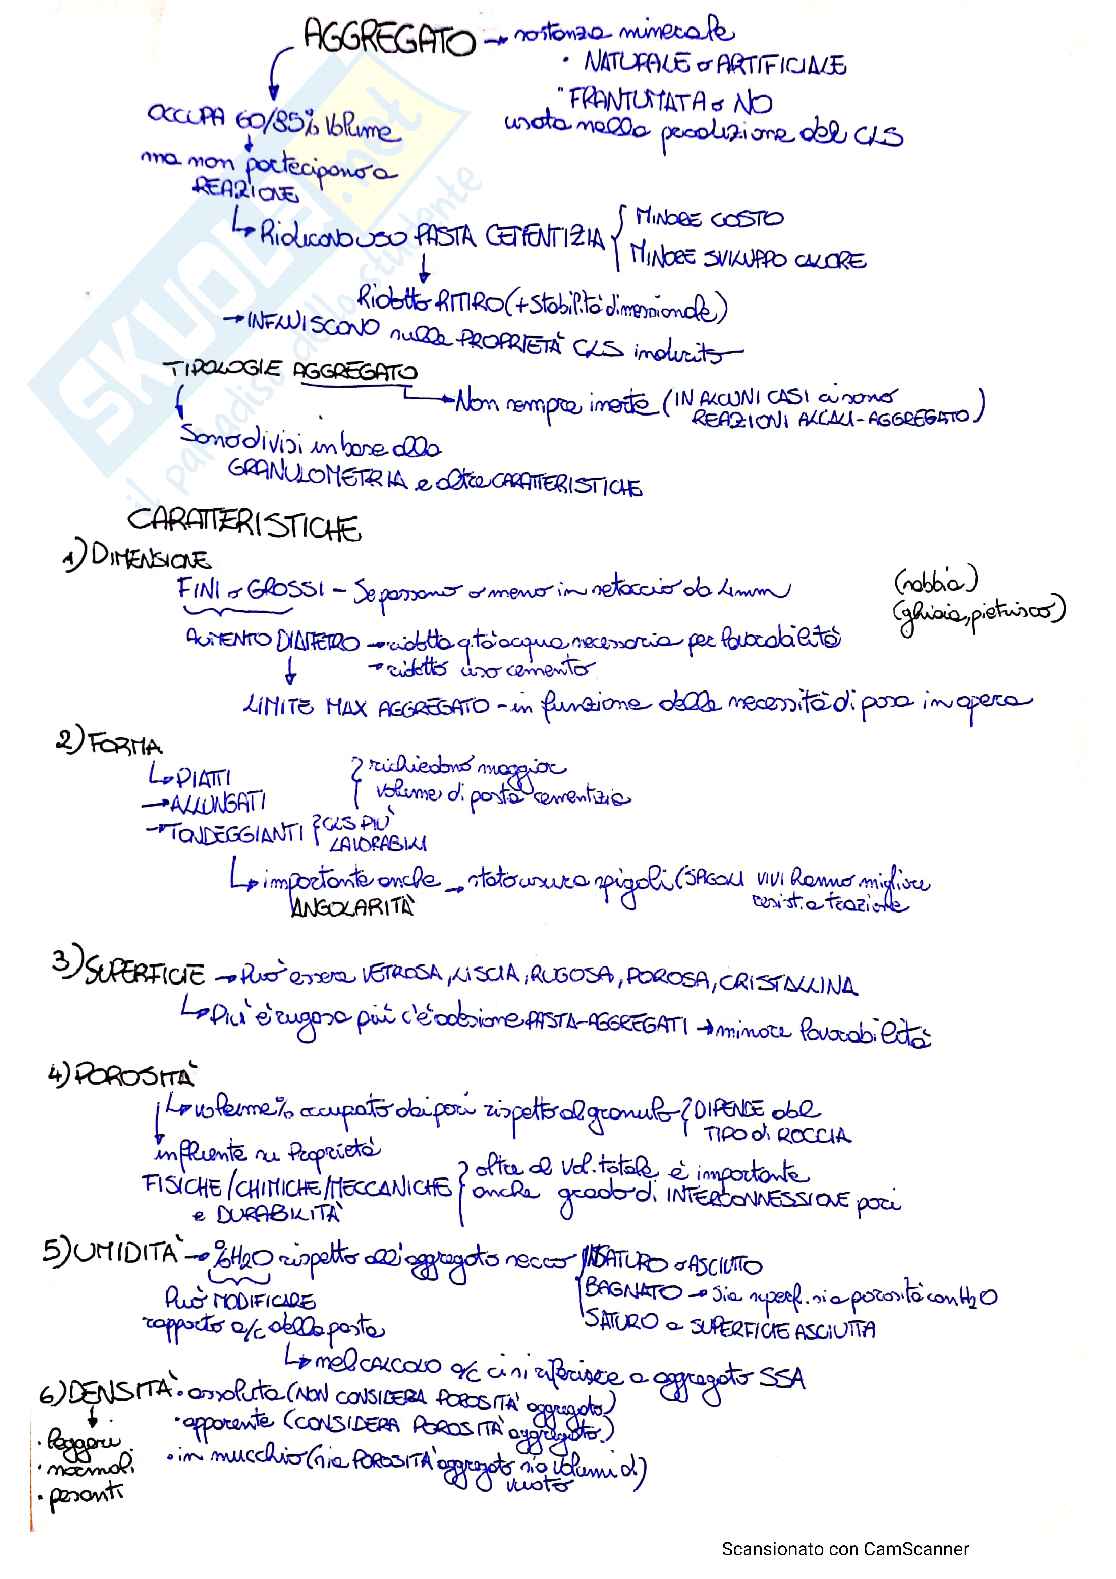 AGGREGATO → sostanza minerale
• NATURALE o ARTIFICIALE
• FRANTUMATA o NO
usata nella produzione del CLS
OCCUPA 60/85% Volume
ma non partecipano a
REAZIONE
↳ Riducono uso PASTA CEMENTIZIA { MINORE COSTO
MINORE SVILUPPO CALORE
Ridotto RITIRO (+ Stabilità dimensionale)
→ INFLUISCONO sulle PROPRIETÀ CLS indurito
TIPOLOGIE AGGREGATO
→ Non sempre inerte (IN ALCUNI CASI ci sono
REAZIONI ALCALI-AGGREGATO)
Sono divisi in base alla
GRANULOMETRIA e altre CARATTERISTICHE
CARATTERISTICHE
1) DIMENSIONE
FINI o GROSSI - Se passano o meno in setaccio da 4mm
(sabbia)
(ghiaia, pietrisco)
AUMENTO DIAMETRO → ridotta q.tà acqua necessaria per lavorabilità
→ ridotto uso cemento
LIMITE MAX AGGREGATO - in funzione delle necessità di posa in opera
2) FORMA
↳ PIATTI
→ ALLUNGATI
} richiedono maggior
volume di pasta cementizia
→ TONDEGGIANTI } CLS PIÙ
LAVORABILI
↳ importante anche → stato usura spigoli (SPIGOLI VIVI hanno migliore
ANGOLARITÀ
resist. a trazione
3) SUPERFICIE → Può essere VETROSA, LISCIA, RUGOSA, POROSA, CRISTALLINA
↳ Più è rugosa più c'è adesione PASTA-AGGREGATI → minore lavorabilità
4) POROSITÀ
↳ volume % occupato dai pori rispetto al granulo } DIPENDE dal
TIPO di ROCCIA
influente su Proprietà
FISICHE/CHIMICHE/MECCANICHE
e DURABILITÀ
} oltre al vol. totale è importante
anche grado di INTERCONNESSIONE pori
5) UMIDITÀ → % H2O rispetto all'aggregato secco
INSATURO o ASCIUTTO
BAGNATO → Sia superf. sia porosità con H2O
SATURO a SUPERFICIE ASCIUTTA
Può MODIFICARE
rapporto a/c della pasta
↳ nel CALCOLO a/c ci si riferisce a aggregato SSA
6) DENSITÀ • assoluta (NON CONSIDERA POROSITÀ aggregato)
• apparente (CONSIDERA POROSITÀ aggregato)
• in mucchio (sia POROSITÀ aggregato sia volumi di)
vuoto
• leggeri
• normali
• pesanti
SKUOLA.net
il paradiso dello studente
Scansionato con CamScanner